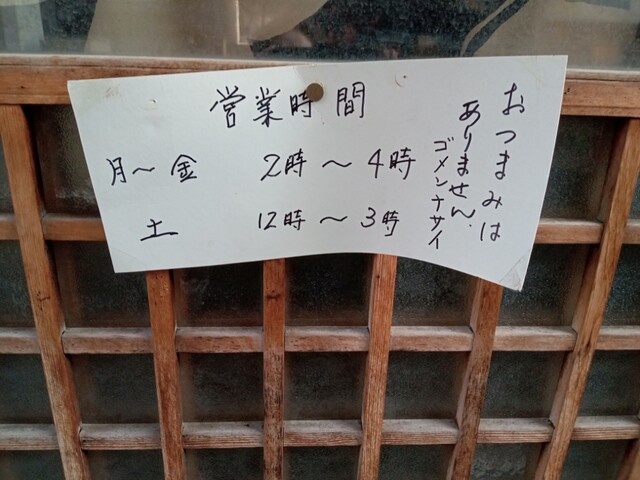 営業時間
月～金 2時～4時
土 12時～3時
おつまみは
ありません.
ゴメンナサイ